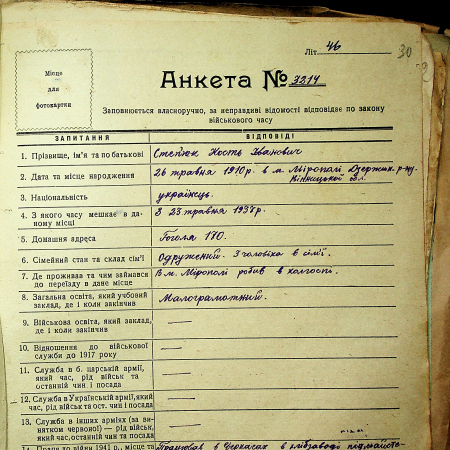 Літ. 46
30
Місце
для
фотокартки
Анкета № 3214
Заповнюється власноручно, за неправдиві відомості відповідає по закону
військового часу
ЗАПИТАННЯ ВІДПОВІДІ
1. Прізвище, ім'я та по батькові Степюк Кость Іванович
2. Дата та місце народження 26 травня 1910 р. в м. Мірополі Дзержин. р-ну
Вінницької обл.
3. Національність українець.
4. З якого часу мешкає в да-
ному місці З 23 травня 1937 р.
5. Домашня адреса Гоголя 170.
6. Сімейний стан та склад сім'ї Одружений. 3 чоловіка в сім'ї.
7. Де проживав та чим займався
до переїзду в дане місце В м. Мірополі робив в колгоспі.
8. Загальна освіта, який учбовий
заклад, де і коли закінчив Малограмотний.
9. Військова освіта, який заклад,
де і коли закінчив —
10. Відношення до військової
служби до 1917 року —
11. Служба в б. царській армії,
який час, рід військ та
останній чин і посада —
12. Служба в Українській армії, який
час, рід військ та ост. чин і посада —
13. Служба в інших арміях (за ви-
нятком червоної) — рід військ,
який час, останній чин та посада —
14. Праця до війни 1941 р., місце та Працював в Черкасах в хлібзаводі